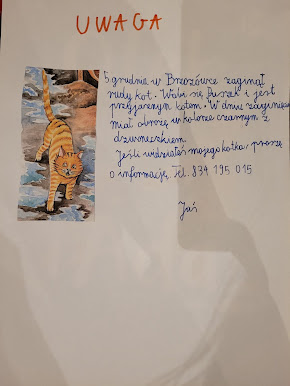 UWAGA
5 grudnia w Brzozówce zaginął
rudy kot. Wabi się Puszek i jest
przyjaznym kotem. W dniu zaginięcia
miał obrożę w kolorze czarnym z
dzwoneczkiem.
Jeśli widziałeś mojego kotka, proszę
o informację, tel. 834 195 015
Jaś